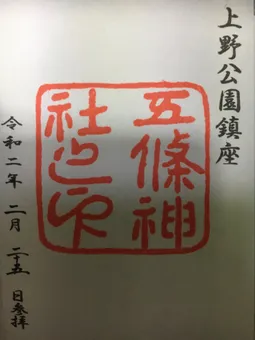 上野公園鎮座
五條神
社之印
令和二年二月二十五日参拝